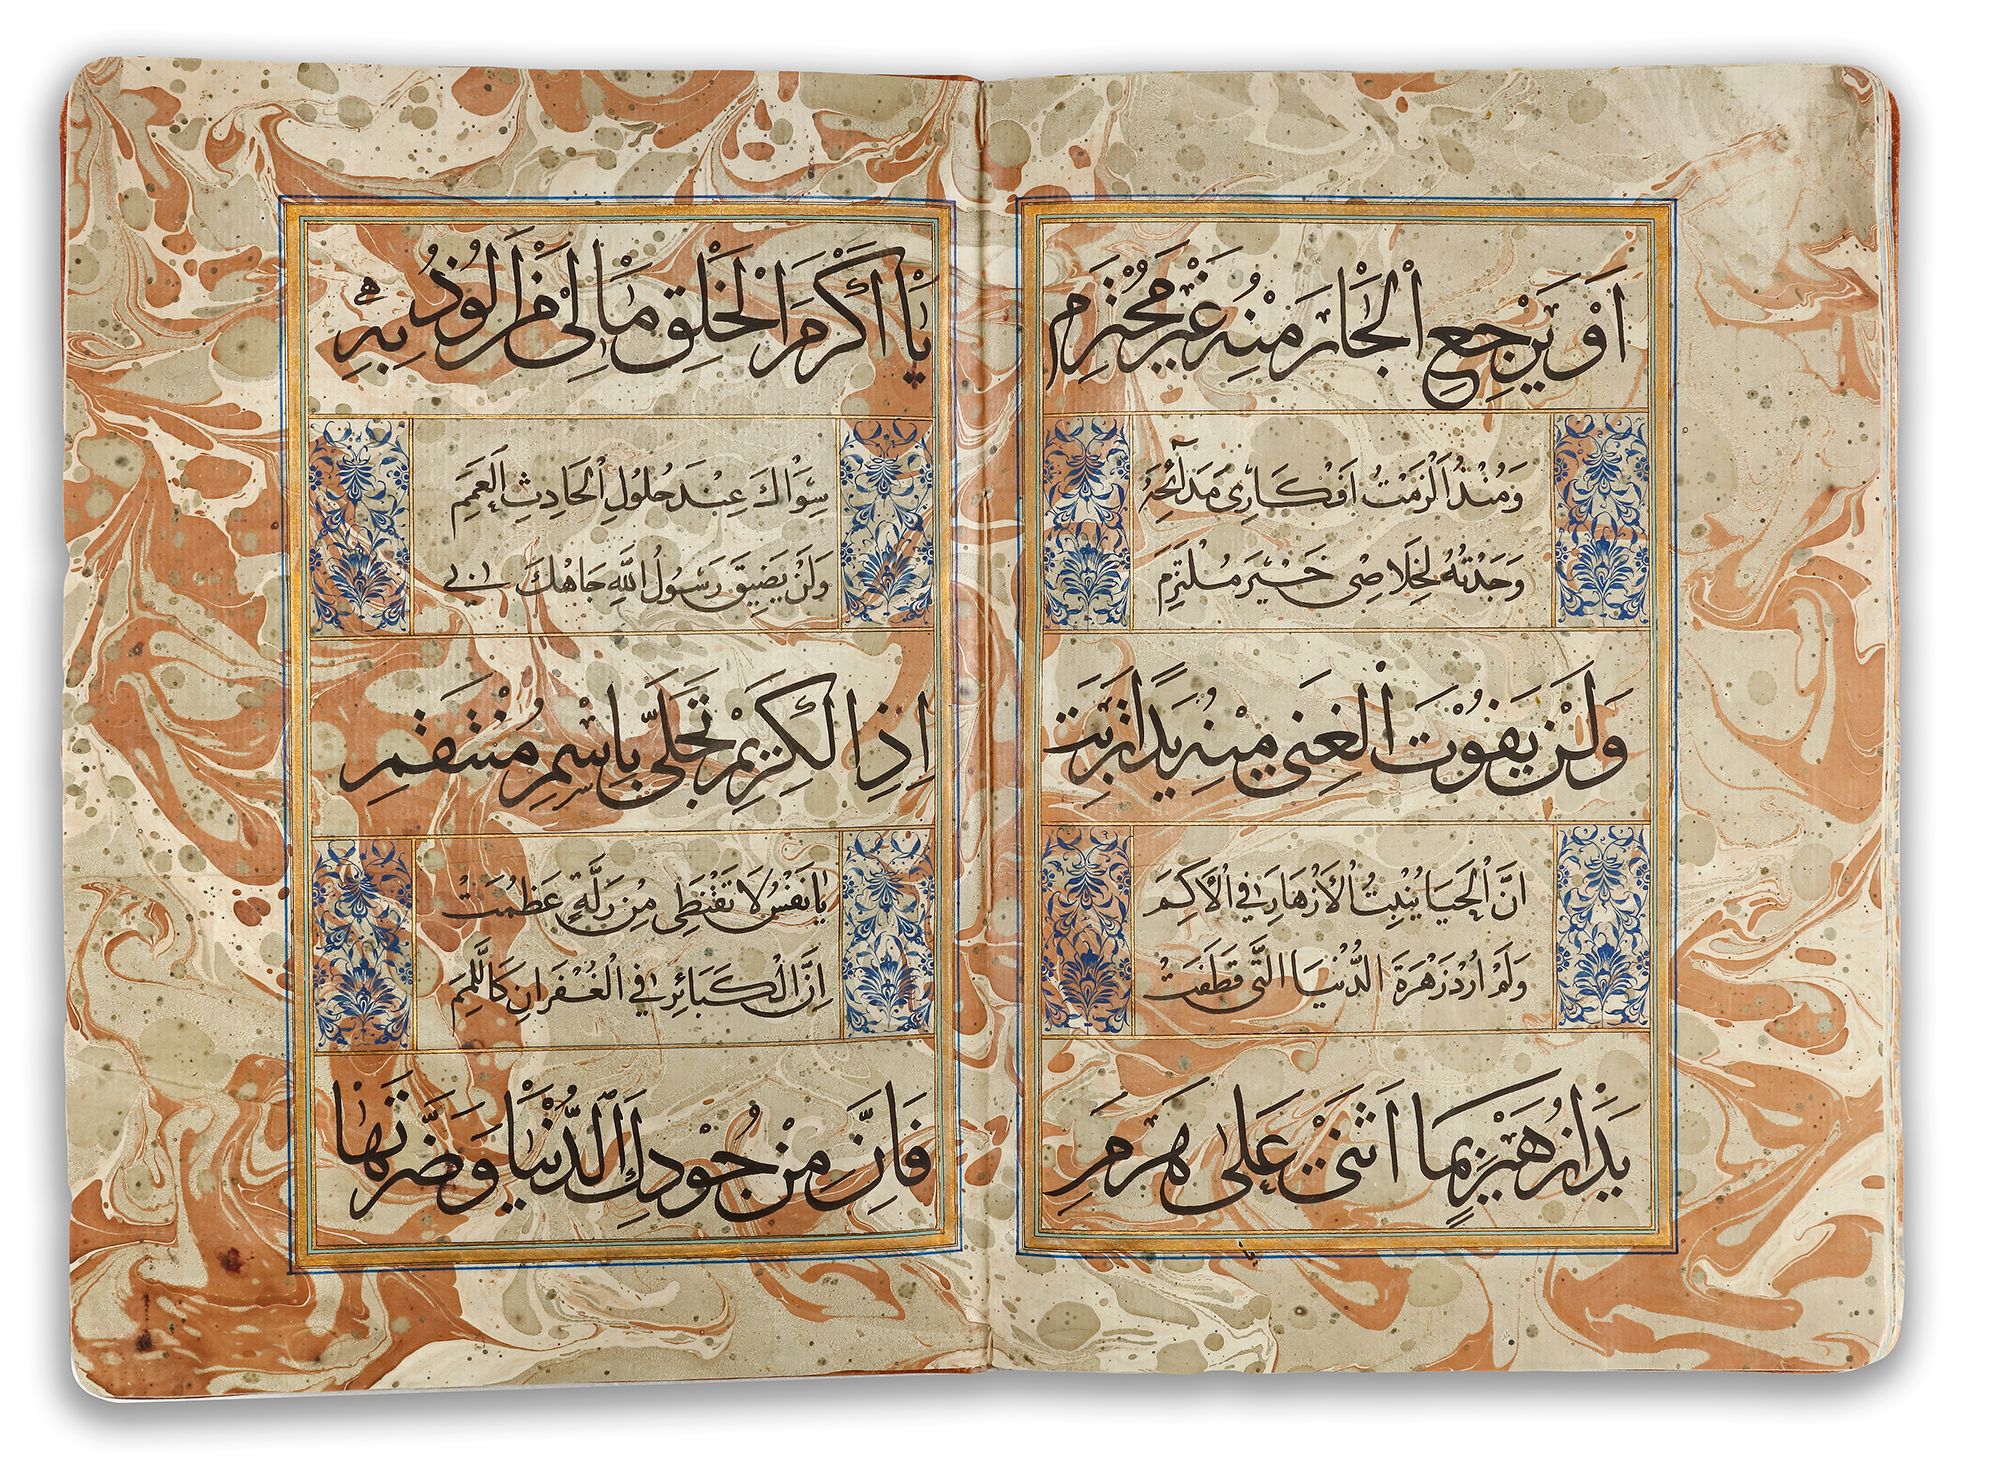 اَوْ يَرْجِعَ الْجَارُ مِنْهُ غَيْرَ مُحْتَرَمِ
وَمُنْذُ اَلْزَمْتُ اَفْكَارِي مَدَآئِحَهُ
وَجَدْتُهُ لِخَلَاصِي خَيْرَ مُلْتَزِمِ
وَلَنْ يَفُوْتَ الْغِنٰى مِنْهُ يَدًا تَرِبَتْ
اِنَّ الْحَيَا يُنْبِتُ الْاَزْهَارَ فِي الْاَكَمِ
وَلَمْ اُرِدْ زَهْرَةَ الدُّنْيَا الَّتِي قَطَفَتْ
يَدَا زُهَيْرٍ بِمَا اَثْنٰى عَلٰى هَرَمِ
يَا اَكْرَمَ الْخَلْقِ مَا لِيْ مَنْ اَلُوْذُ بِهِ
سِوَاكَ عِنْدَ حُلُوْلِ الْحَادِثِ الْعَمِمِ
وَلَنْ يَضِيْقَ رَسُوْلَ اللّٰهِ جَاهُكَ بِي
اِذَا الْكَرِيْمُ تَجَلّٰى بِاسْمِ مُنْتَقِمِ
يَا نَفْسُ لَا تَقْنَطِي مِنْ زَلَّةٍ عَظُمَتْ
اِنَّ الْكَبَائِرَ فِي الْغُفْرَانِ كَاللَّمَمِ
فَاِنَّ مِنْ جُوْدِكَ الدُّنْيَا وَضَرَّتَهَا